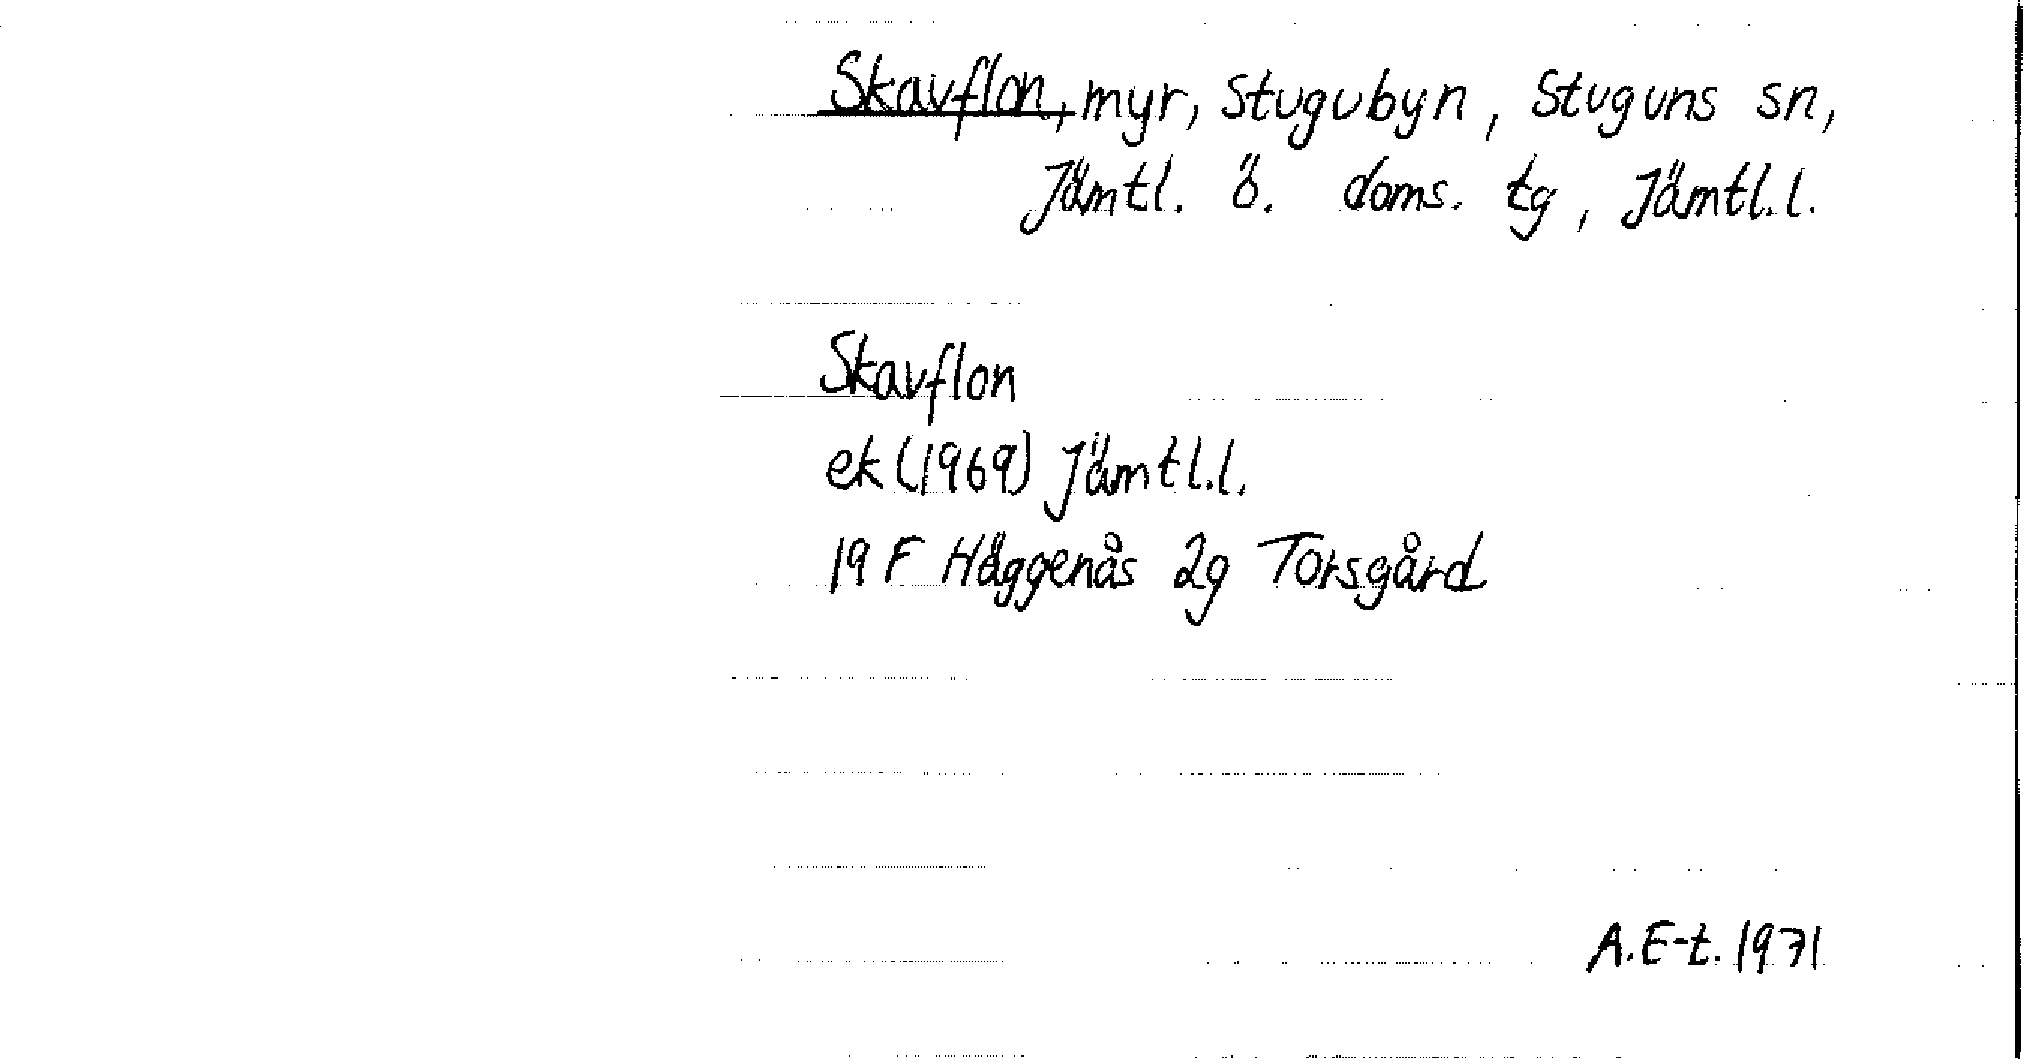 Skavflon, myr, Stugubyn, Stuguns sn,
Jämtl. ö. doms. tg, Jämtl.l.
Skavflon
ek (1969) Jämtl.l.
19 F Häggenås 2g Torsgård
A.E-t. 1971